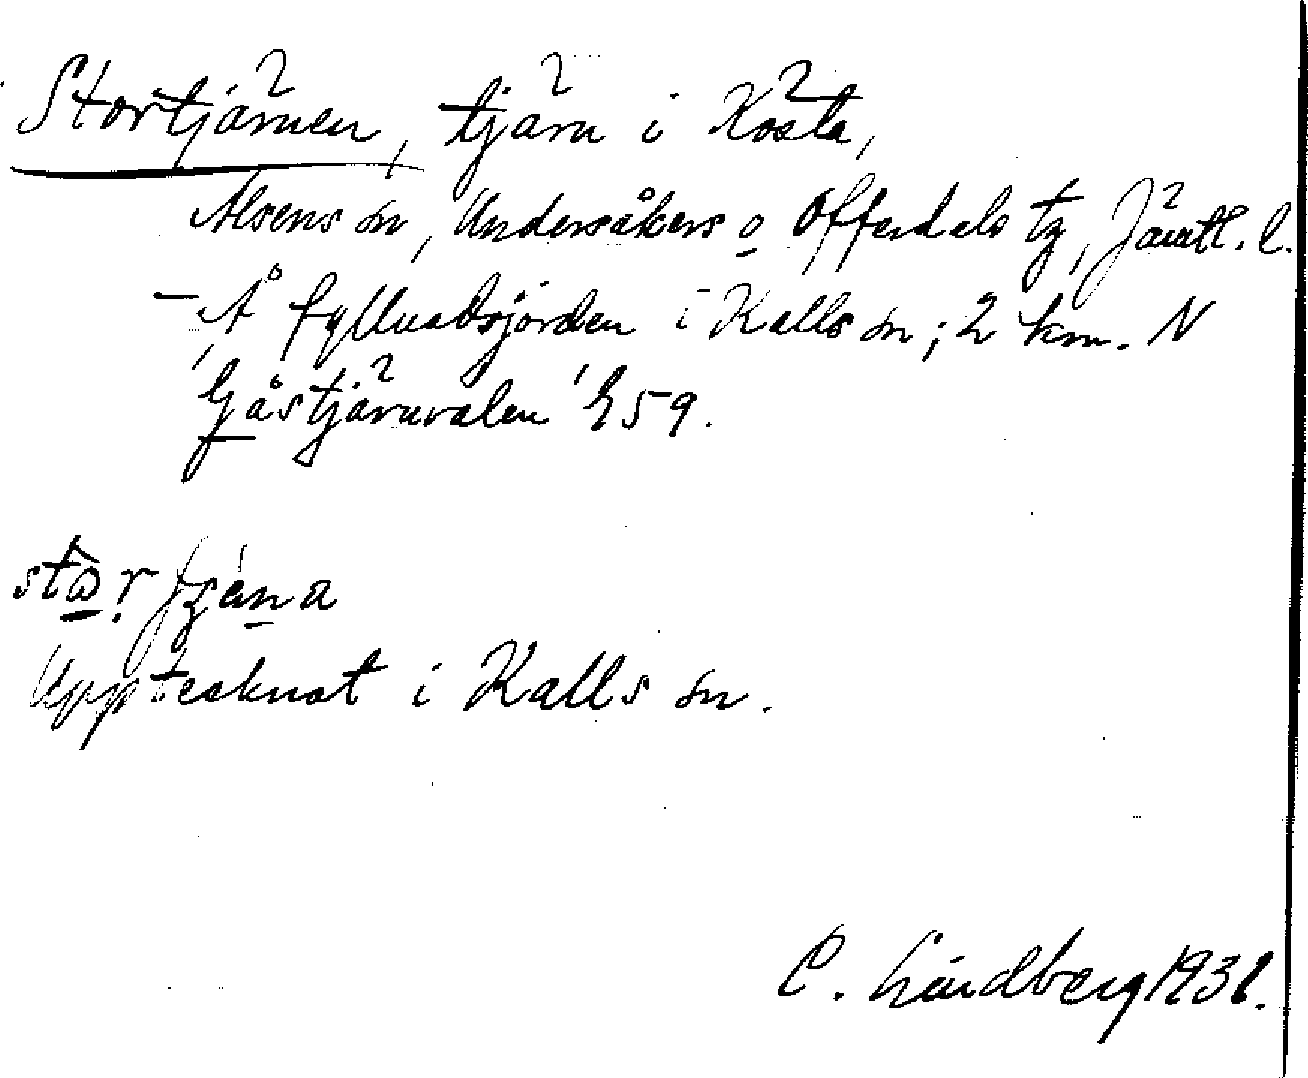 Stortjärnen, tjärn i Kösta,
Alsens sn, Undersåkers o Offerdals tg, Jämtl. l.
– Å fyllnadsjorden i Kalls sn; 2 km. N
'Gåstjärnvalen' 859.
Upptecknat i Kalls sn.
C. Lindberg 1931.